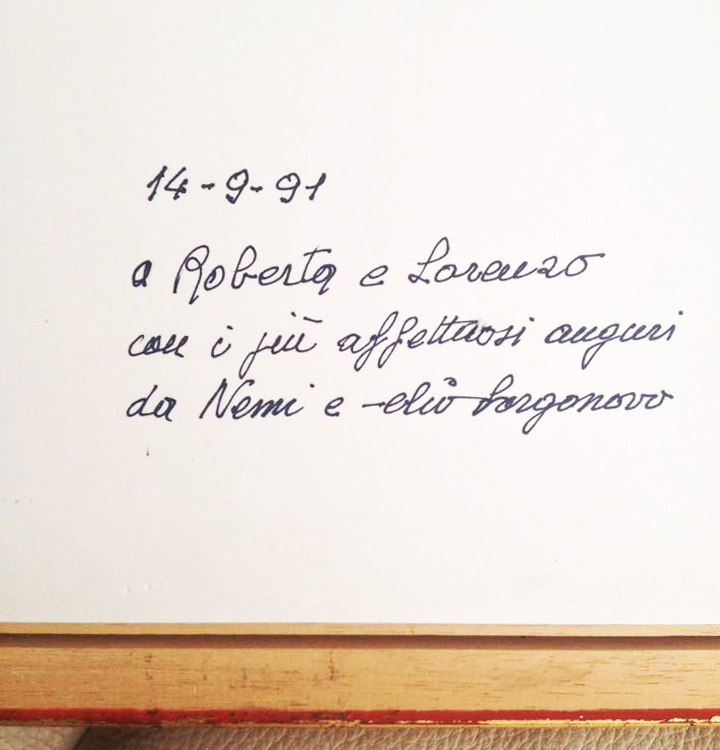 14-9-91
a Roberta e Lorenzo
con i più affettuosi auguri
da Nemi e elio borgonovo